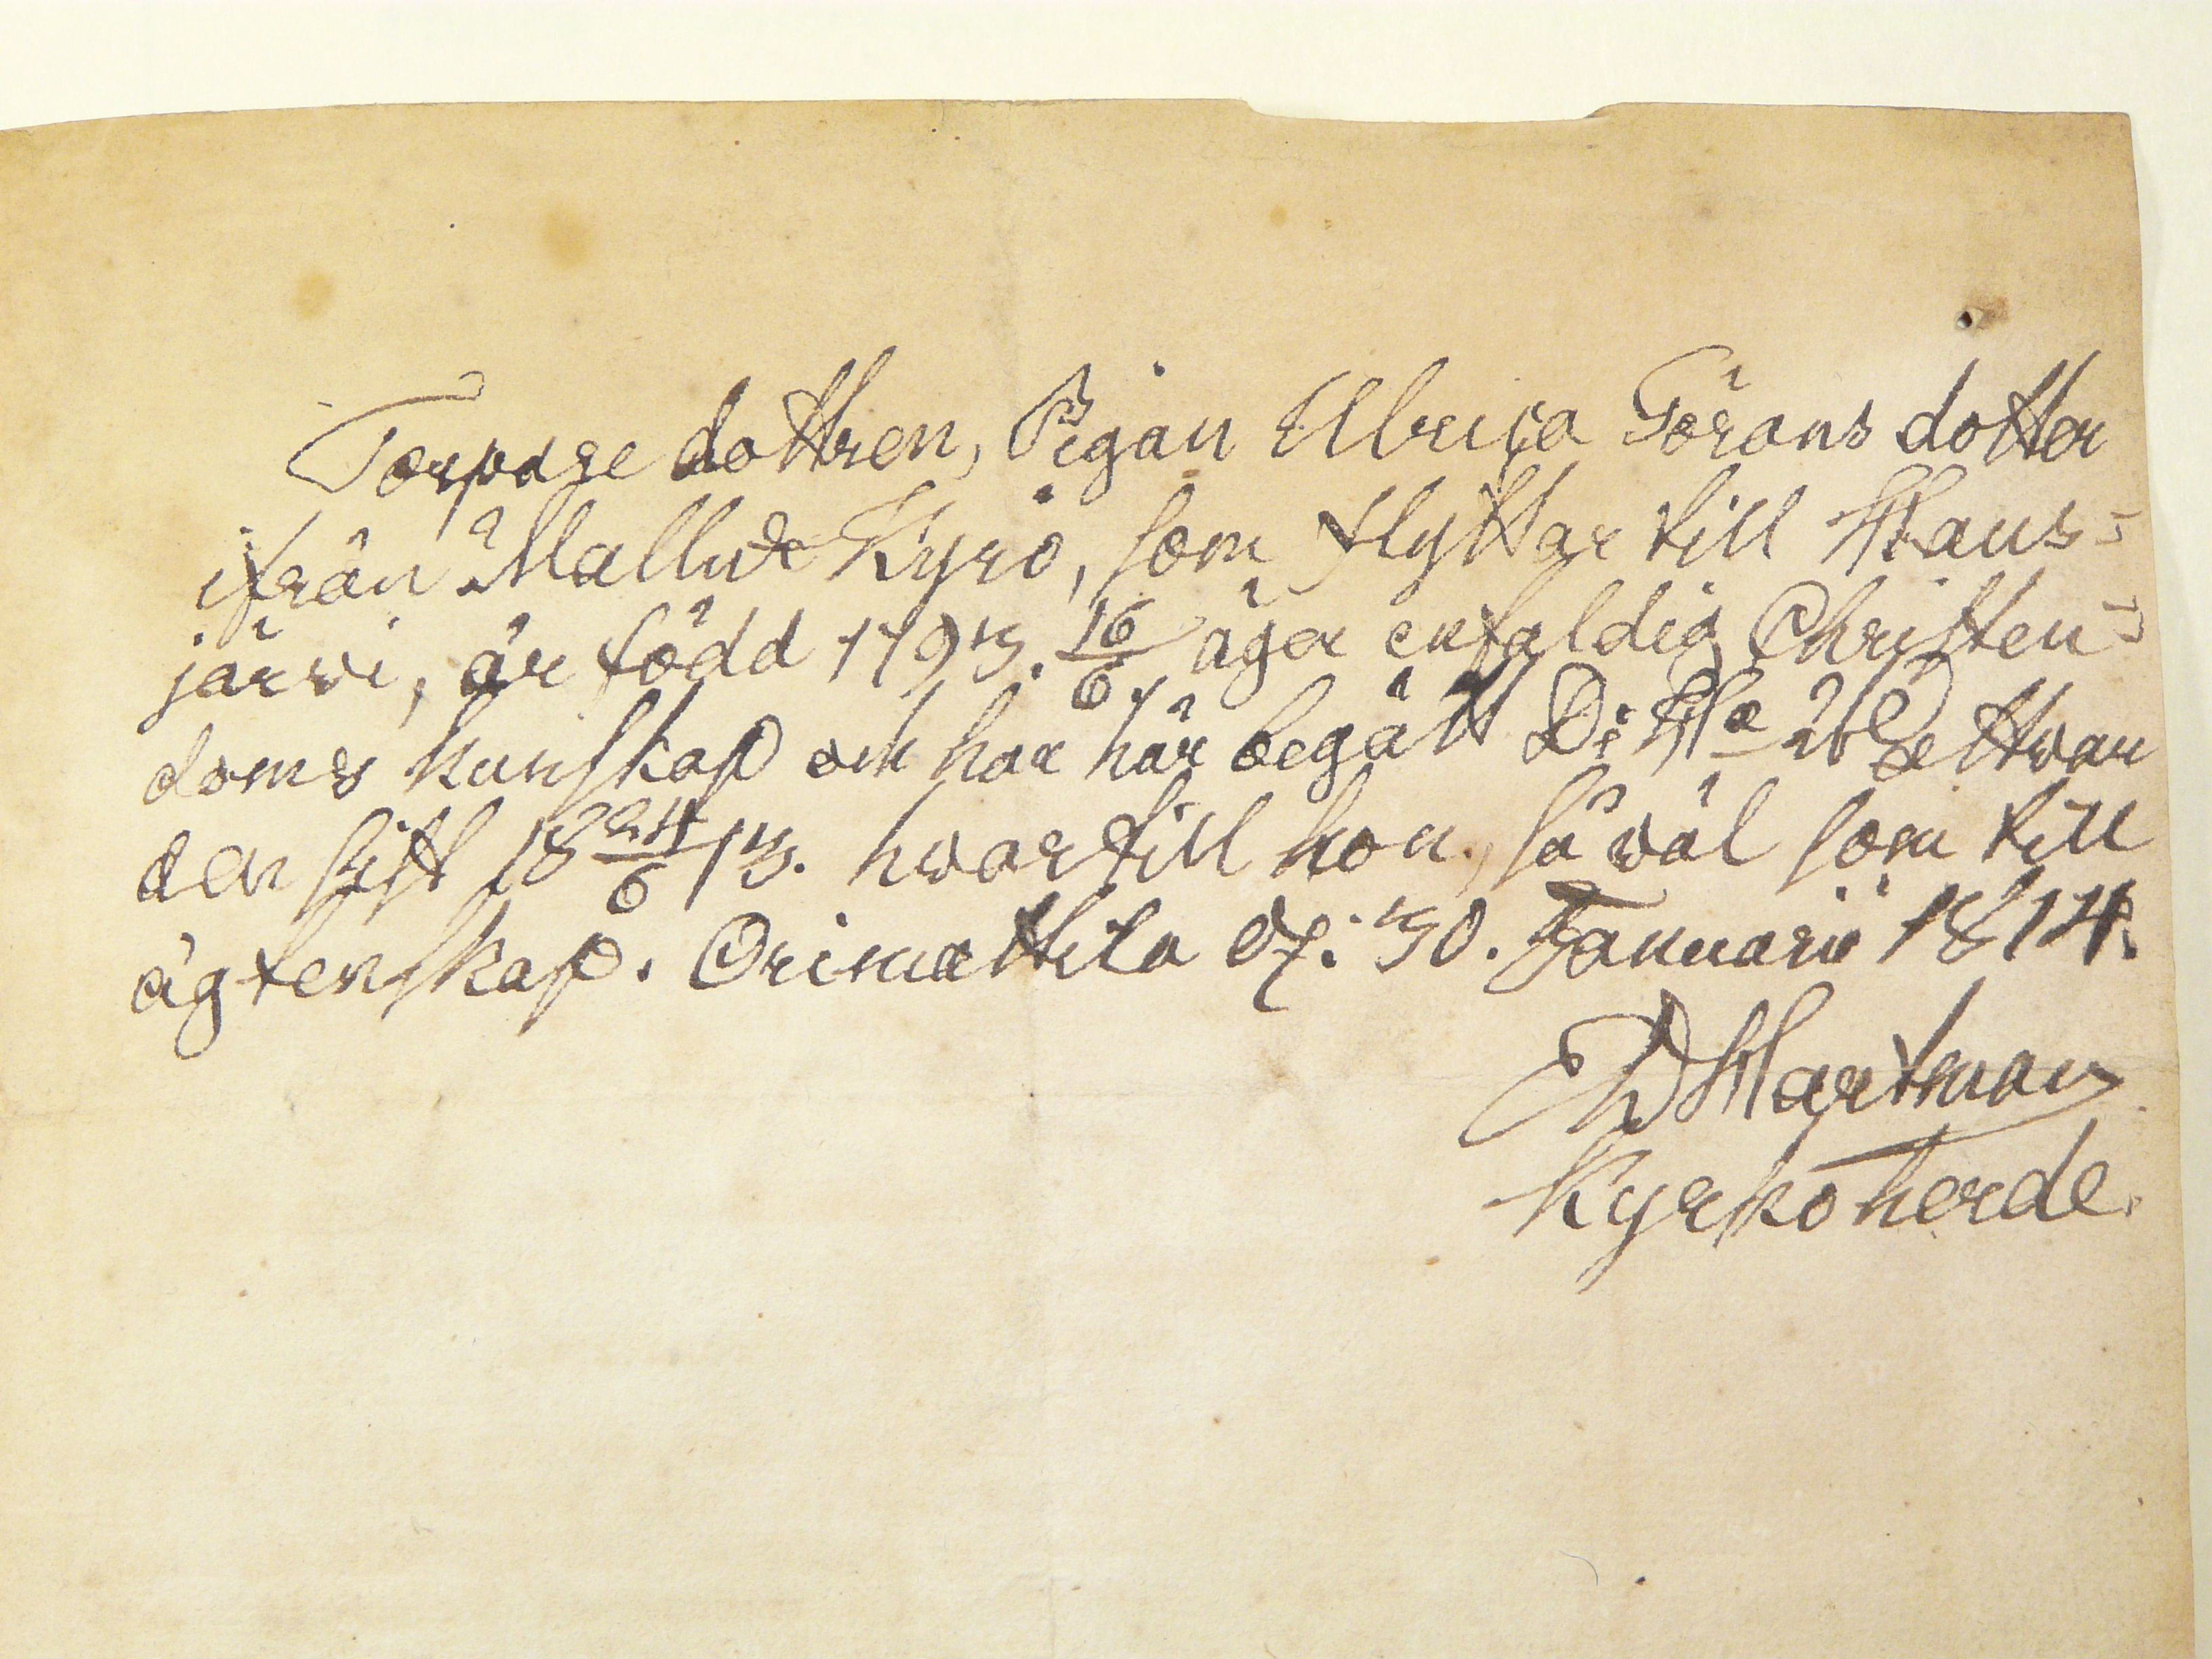 Torpare dottren, Pigan Ulrica Görans dotter
ifrån Mallusk Kyrö, som flyttar till Haus=
järvi, är född 1793. 16/6. äger enfaldig Christen=
doms kunskap och har här begått D: Ha Ne ttvar
den sist 18 24/6 13. hvartill hon, så väl som till
ägtenskap. Orimattila d. 30. Januarii 1814.
Hartman
Kyrkoherde.